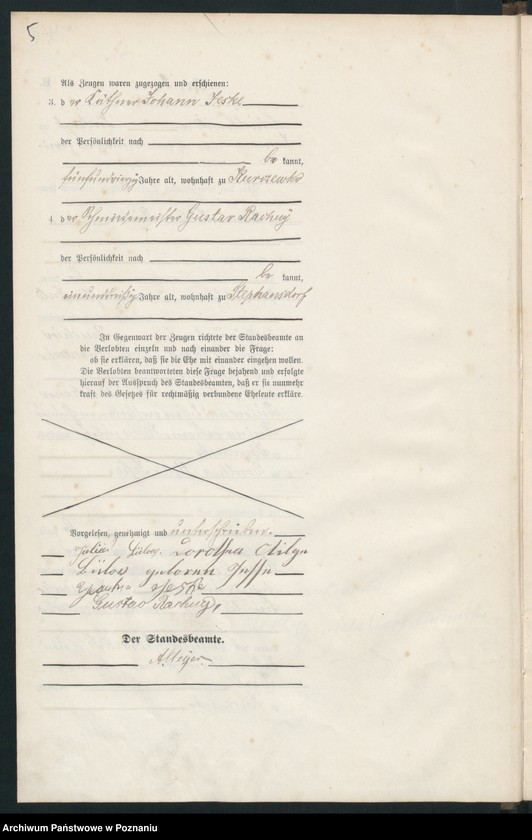 5
Als Zeugen waren zugezogen und erschienen:
3. der Käthner Johann Jeske
der Persönlichkeit nach
be kannt,
fünfundvierzig Jahre alt, wohnhaft zu
4. der Schmiedemeister Gustav Rachuy
der Persönlichkeit nach
be kannt,
Jahre alt, wohnhaft zu Stephansdorf
In Gegenwart der Zeugen richtete der Standesbeamte an
die Verlobten einzeln und nach einander die Frage:
ob sie erklären, daß sie die Ehe mit einander eingehen wollen.
Die Verlobten beantworteten diese Frage bejahend und erfolgte
hierauf der Ausspruch des Standesbeamten, daß er sie nunmehr
kraft des Gesetzes für rechtmäßig verbundene Eheleute erkläre.
Vorgelesen, genehmigt und unterschrieben.
Dorothea
geboren
Jeske
Gustav Rachuy,
Der Standesbeamte.
Archiwum Państwowe w Poznaniu